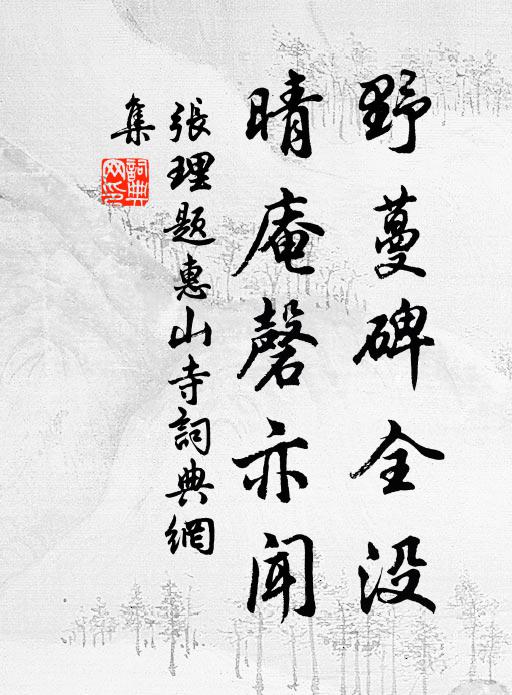 野蔓碑全没
晴庵磬亦闻
張理題惠山寺詞典網
集
詞典
网印